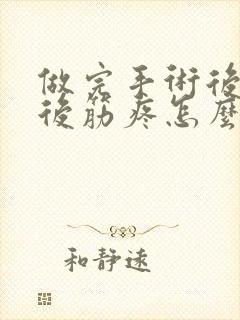 做完手術後
後筋疼怎麼
和靜速